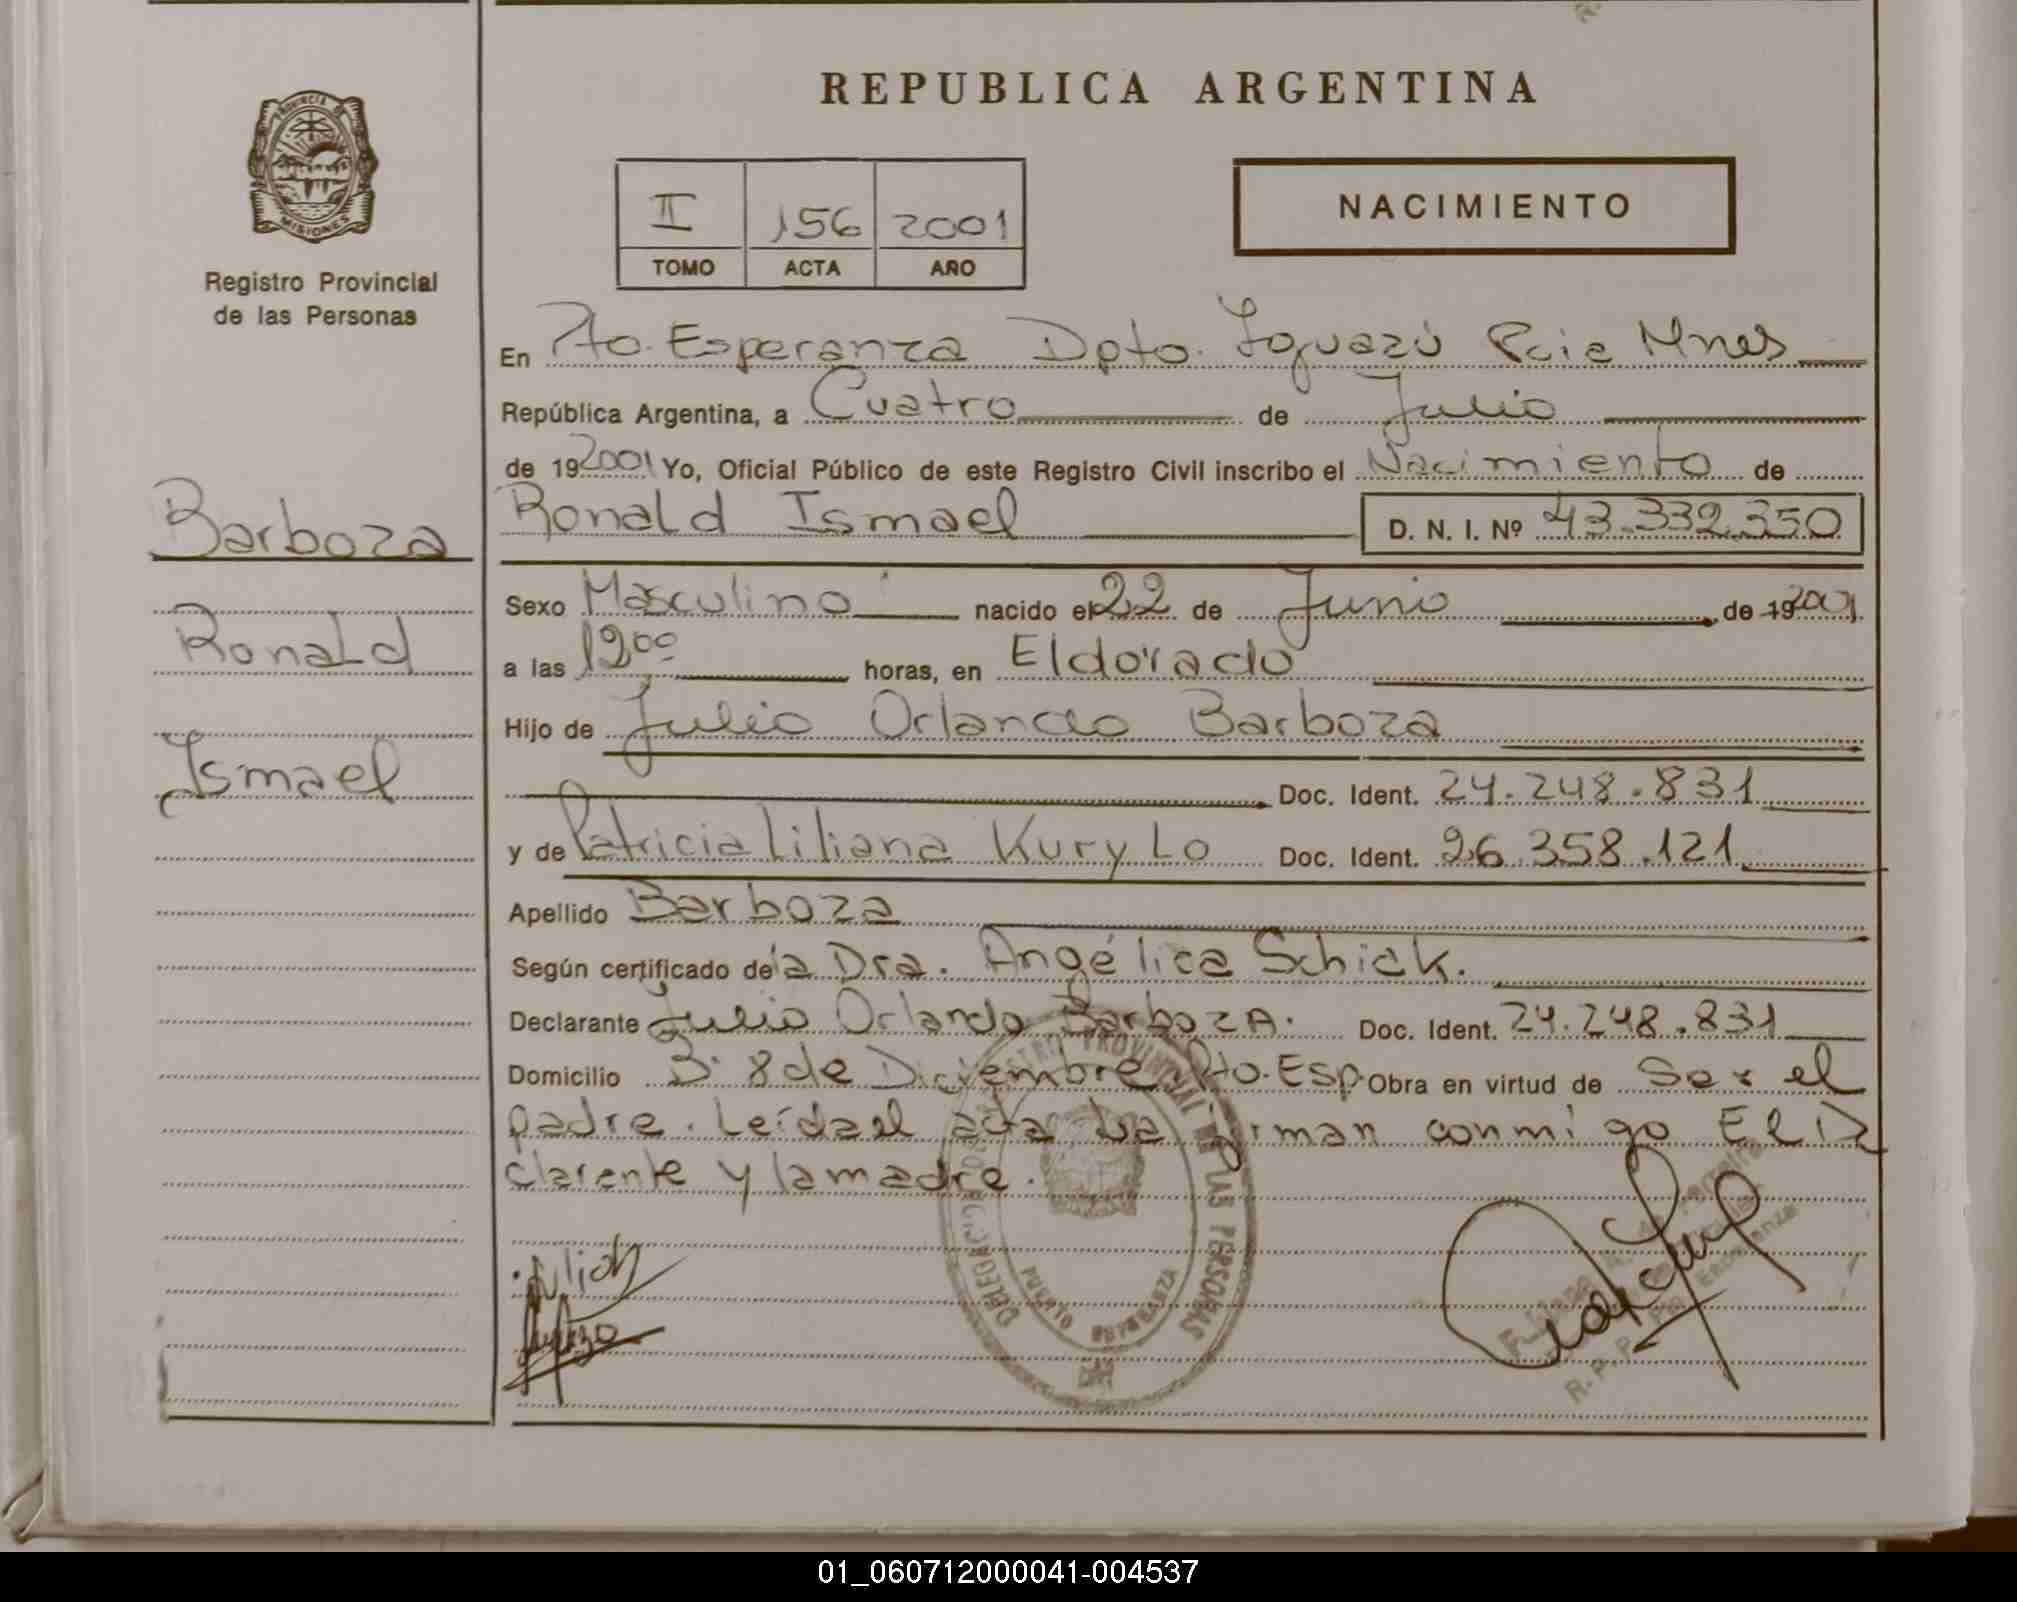 REPUBLICA ARGENTINA
PROVINCIA DE
MISIONES
Registro Provincial
de las Personas
II 156 2001
TOMO ACTA AÑO
NACIMIENTO
En Pto. Esperanza Dpto. Iguazú Pcia Mnes
República Argentina, a Cuatro de Julio
de 192001 Yo, Oficial Público de este Registro Civil inscribo el Nacimiento de
Ronald Ismael D. N. I. Nº 43.332.350
Barboza
Ronald
Ismael
Sexo Masculino nacido el 22 de Junio de 192001
a las 1200 horas, en Eldorado
Hijo de Julio Orlando Barboza
Doc. Ident. 24.248.831
y de Patricia Liliana Kurylo Doc. Ident. 26.358.121
Apellido Barboza
Según certificado de la Dra. Angélica Schick.
Declarante Julio Orlando Barboza. Doc. Ident. 24.248.831
Domicilio B° 8 de Diciembre Pto. Esp Obra en virtud de Ser el
padre. Leída el acta la firman conmigo El De
clarante y la madre.
REGISTRO PROVINCIAL DE LAS PERSONAS
DELEGACION
PUERTO ESPERANZA
01_060712000041-004537